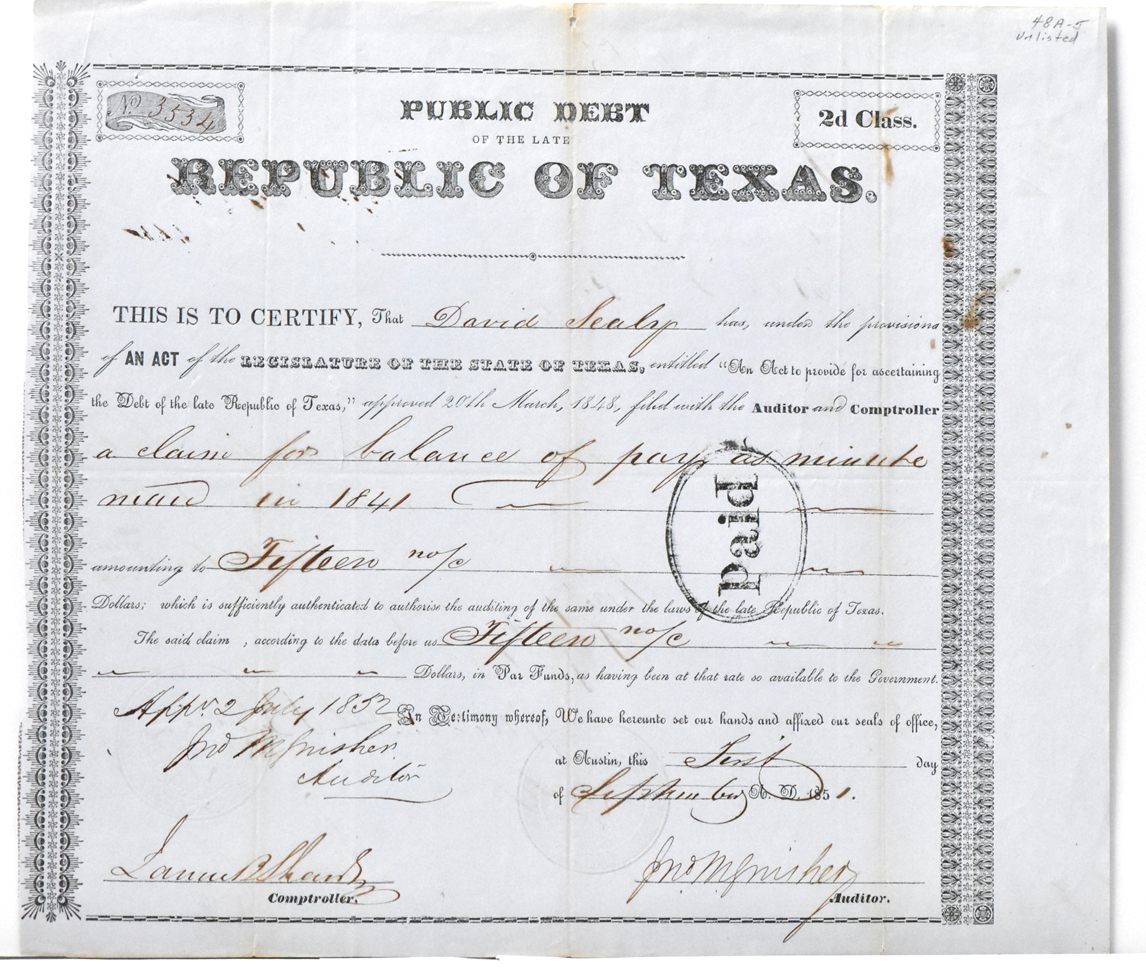 48A-5
unlisted
No 3534
PUBLIC DEBT
2d Class.
OF THE LATE
REPUBLIC OF TEXAS.
THIS IS TO CERTIFY, That David Sealy has, under the provisions
of AN ACT of the LEGISLATURE OF THE STATE OF TEXAS, entitled "An Act to provide for ascertaining
the Debt of the late Republic of Texas," approved 20th March, 1848, filed with the Auditor and Comptroller
a claim for balance of pay as minute
man in 1841
Paid
amounting to Fifteen no/c
Dollars; which is sufficiently authenticated to authorise the auditing of the same under the laws of the late Republic of Texas.
The said claim, according to the data before us Fifteen no/c
Dollars, in Par Funds, as having been at that rate so available to the Government.
Appr. 2 July 1852 In Testimony whereof, We have hereunto set our hands and affixed our seals of office,
Jno M Swisher
Auditor
at Austin, this First day
of September A. D. 1851.
James B Shaw
Jno M Swisher
Comptroller.
Auditor.